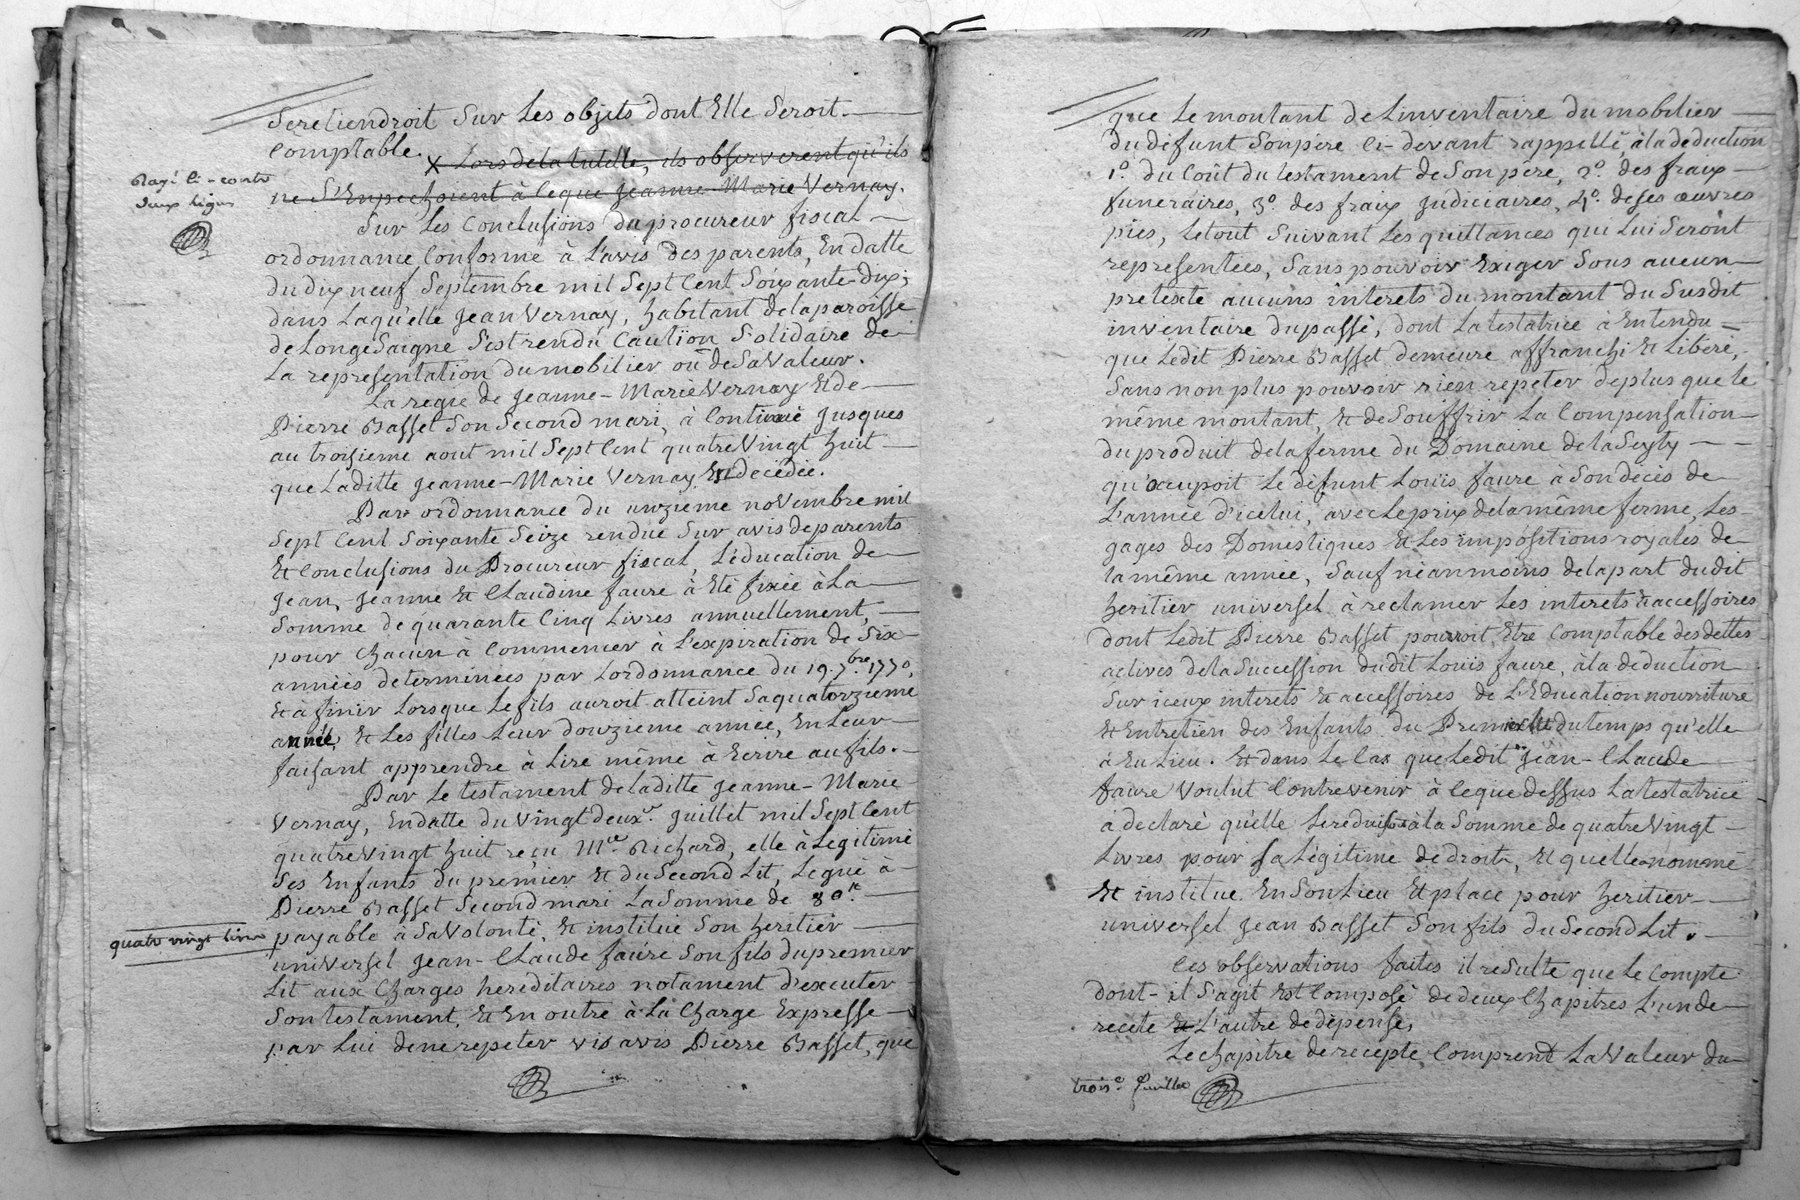 Seretiendroit Sur Les objets dont Elle Seroit.
Comptable. X Lors de la tutelle, ils observerent qu'ils
Rayé ci-contre
deux lignes
ne S'Empechoient à ceque Jeanne-Marie Vernay.
Sur Les Conclusions du procureur fiscal
ordonnance Conforme à L'avis des parents, En datte
du dix neuf Septembre mil Sept Cent Soixante-dix;
dans Laquelle Jean Vernay, habitant de la paroisse
de LongeSaigne S'est rendu Caution Solidaire de
La representation du mobilier ou de Sa Valeur.
La regie de Jeanne-Marie Vernay Et de
Pierre Basset Son Second mari, à Continué Jusques
au troisieme aout mil Sept Cent quatre Vingt huit
que Laditte Jeanne-Marie Vernay Est decedée.
Par ordonnance du onzieme novembre mil
Sept Cent Soixante Seize rendue Sur avis de parents
Et Conclusions du Procureur fiscal, L'éducation de
Jean, Jeanne Et Claudine faure à Eté fixée à La
Somme de quarante Cinq Livres annuellement,
pour Chacun à Commencer à L'expiration de Six
années determinées par L'ordonnance du 19. 7bre 1770,
Et à finir Lorsque Le fils auroit atteint Sa quatorzieme
année, Et Les filles Leur douzieme année, En Leur
faisant apprendre à Lire même à Ecrire au fils.
Par Le testament de Laditte Jeanne-Marie
Vernay, En datte du Vingt deuxe. Juillet mil Sept Cent
quatre Vingt huit reçu Me Richard, elle à Legitimé
Ses Enfants du premier Et du Second Lit, Legué à
Pierre Basset Second mari La Somme de 80.tt
quatre vingt livres
payable à Sa Volonté, Et institue Son heritier
universel Jean-Claude faure Son fils du premier
Lit aux Charges hereditaires notament d'executer
Son testament, Et En outre à La Charge Expresse
par Lui de ne repeter vis avis Pierre Basset, que
que Le montant de L'inventaire du mobilier
du défunt Son pere Ci-devant rappellé, à la deduction
1o. du Coût du testament de Son pere, 2o. des fraix
funeraires, 3o. des fraix Judiciaires, 4o. de Ses œuvres
pies, Le tout Suivant Les quittances qui Lui Seront
representées, Sans pouvoir Exiger Sous aucun
pretexte aucuns interets du montant du Susdit
inventaire du passé, dont La testatrice à Entendu
que Ledit Pierre Basset demeure affranchi Et Liberé,
Sans non plus pouvoir rien repeter de plus que Le
même montant, Et de Souffrir La Compensation
du produit de la ferme du Domaine de la Seyty
qu'occupoit Le défunt Louïs faure à Son décés de
L'année d'icelui, avec Le prix de la même ferme, Les
gages des Domestiques Et Les impositions royales de
la même année, Sauf néanmoins de la part dudit
heritier universel à reclamer Les interets Et accessoires
dont Ledit Pierre Basset pourroit Etre Comptable des dettes
actives de la Succession dudit Louïs faure, à la deduction
Sur iceux interets Et accessoires de L'Education nourriture
Et Entretien des Enfants du Premier Lit du temps qu'elle
à Eu Lieu. Et dans Le Cas que Ledit Jean-Claude
faure Voulut Contrevenir à Ceque dessus La testatrice
a declaré qu'elle Le reduisoit à la Somme de quatre Vingt
Livres pour Sa Légitime de droit, Et quelle a nommé
Et institue En Son Lieu Et place pour heritier
universel Jean Basset Son fils du Second Lit.
Ces observations faites il resulte que Le Compte
dont-il S'agit Est Composé de deux Chapitres L'un de
recete Et L'autre de dépense,
Le Chapitre de recepte Comprend La Valeur du
troise. feuillet